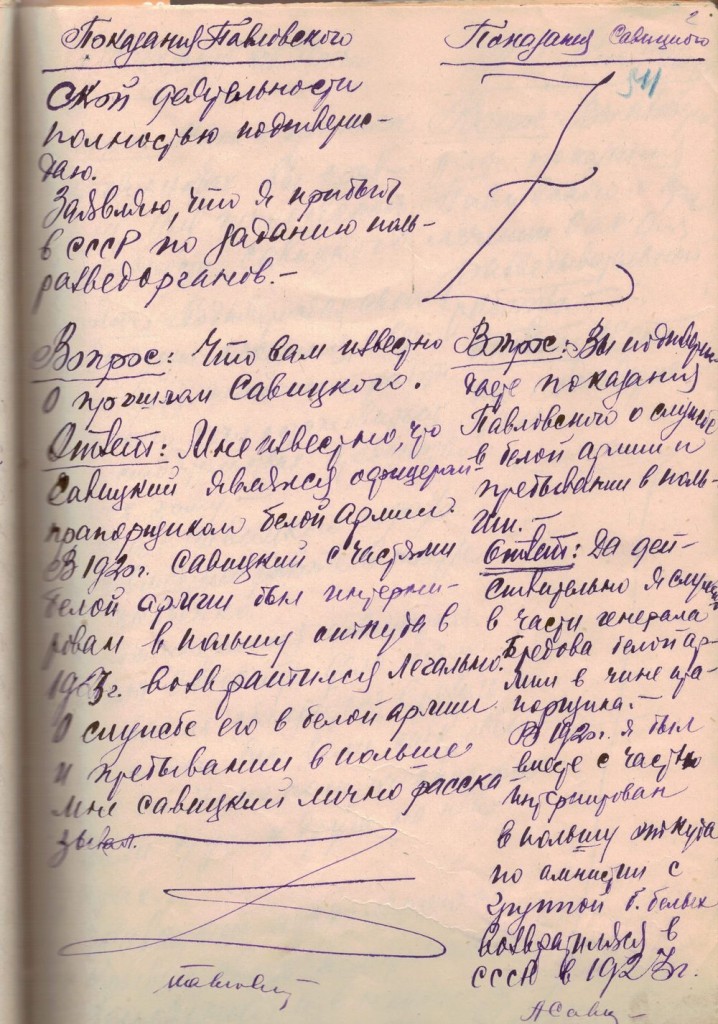 2
Показания Павловского
ской деятельности
полностью подтверж-
даю.
Заявляю, что я прибыл
в СССР по заданию поль-
разведорганов.-
Вопрос: Что вам известно
о прошлом Савицкого.
Ответ: Мне известно, что
Савицкий являлся офицером-
прапорщиком белой армии.
В 1920г. Савицкий с частями
белой армии был интерни-
рован в польшу откуда в
1923г. возвратился легально.
О службе его в белой армии
и пребывании в польше
мне Савицкий лично расска-
зывал.
Показания Савицкого
541
Вопрос: Вы подтверж-
даете показания
Павловского о службе
в белой армии и
пребывании в поль-
ши.-
Ответ: Да дей-
ствительно я служил
в части генерала
Бредова белой ар-
мии в чине пра-
порщика.-
В 1920г. я был
вместе с частью
интернирован
в польшу откуда
по амнистии с
группой б. белых
возвратился в
СССР в 1923г.